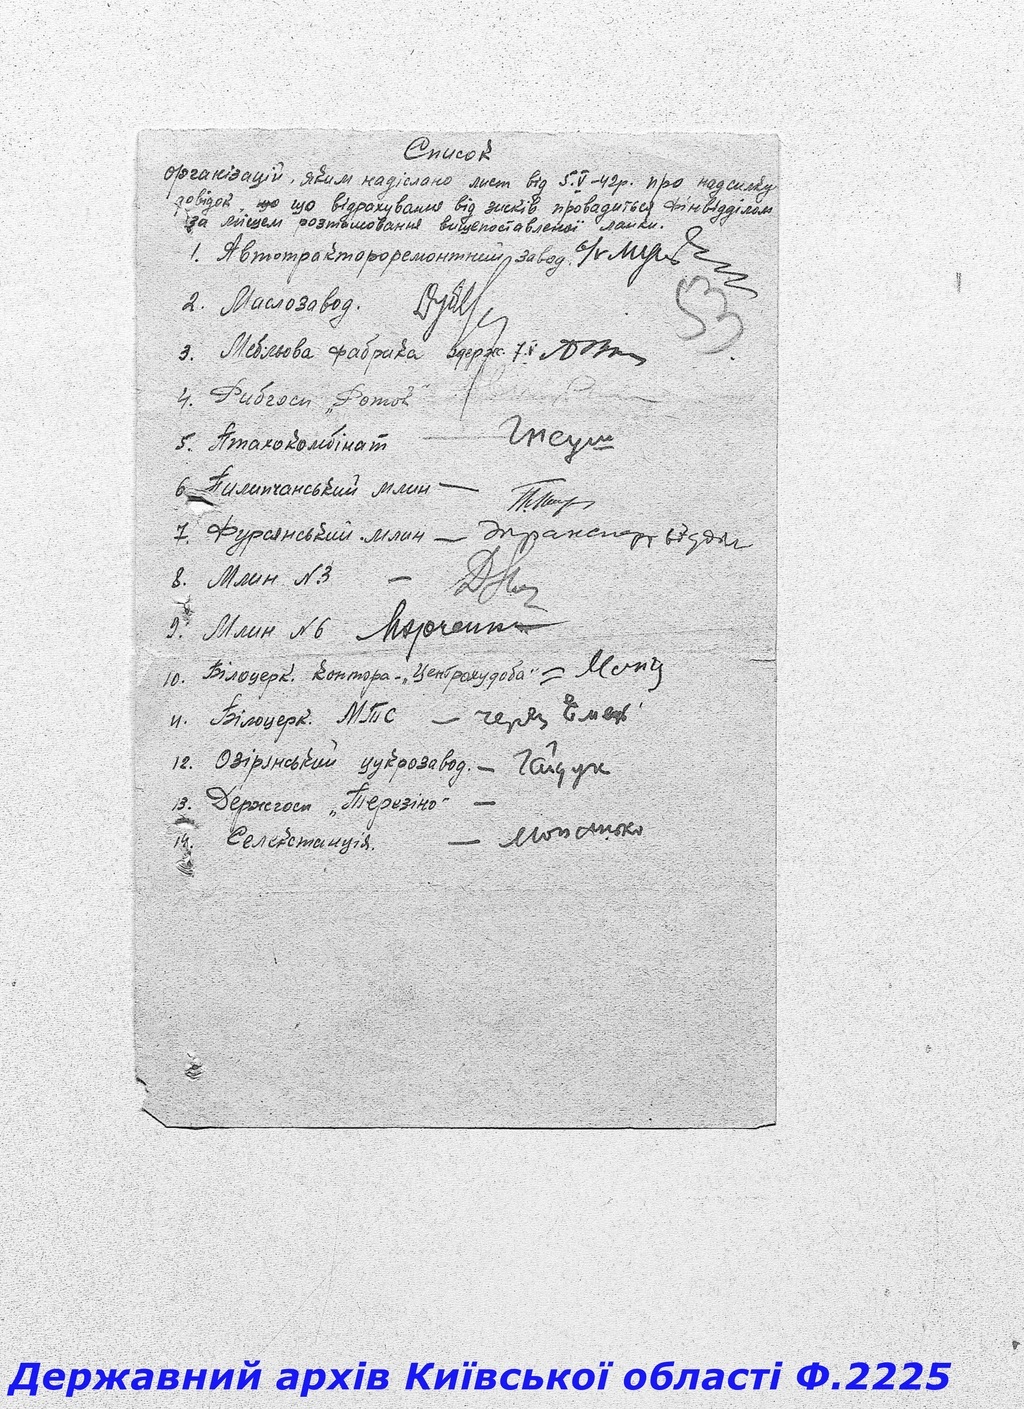 Список
організацій, яким надіслано лист від 5.V-42р. про надсилку
довідок, що що відрахування від зисків провадиться фінвідділом
за місцем розташовання вищепоставленої ланки.
1. Автотрактороремонтний завод.
53
2. Маслозавод.
3. Мебльова фабрика одерж. 7.V
4. Рибгосп „Роток"
5. Птахокомбінат
6. Пилипчанський млин —
7. Фурсянський млин —
8. Млин №3 —
9. Млин №6 Марченко
10. Білоцерк. контора „Центрохудоба" =
11. Білоцерк. МТС — через
12. Озірянський цукрозавод. — Гайдук
13. Держгосп „Терезіно" —
14. Селекстанція. —
Державний архів Київської області Ф.2225